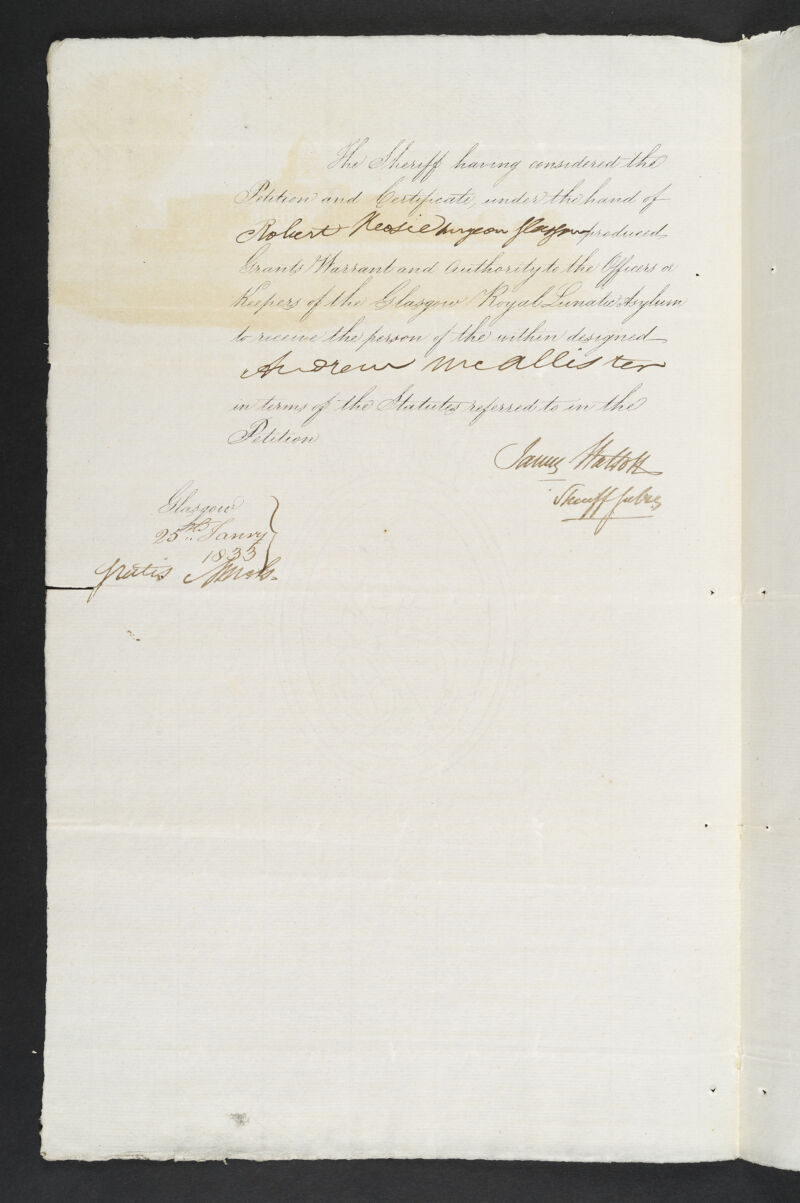 The Sheriff having considered the
Petition and Certificate, under the hand of
Robert surgeon Glasgow produced
Grants Warrant and Authority to the Officers or
Keepers of the Glasgow Royal Lunatic Asylum
to receive the person of the within designed
Andrew McAllister
in terms of the Statutes referred to in the
Petition
James
Sheriff
Glasgow
25th Janry
1833
gratis